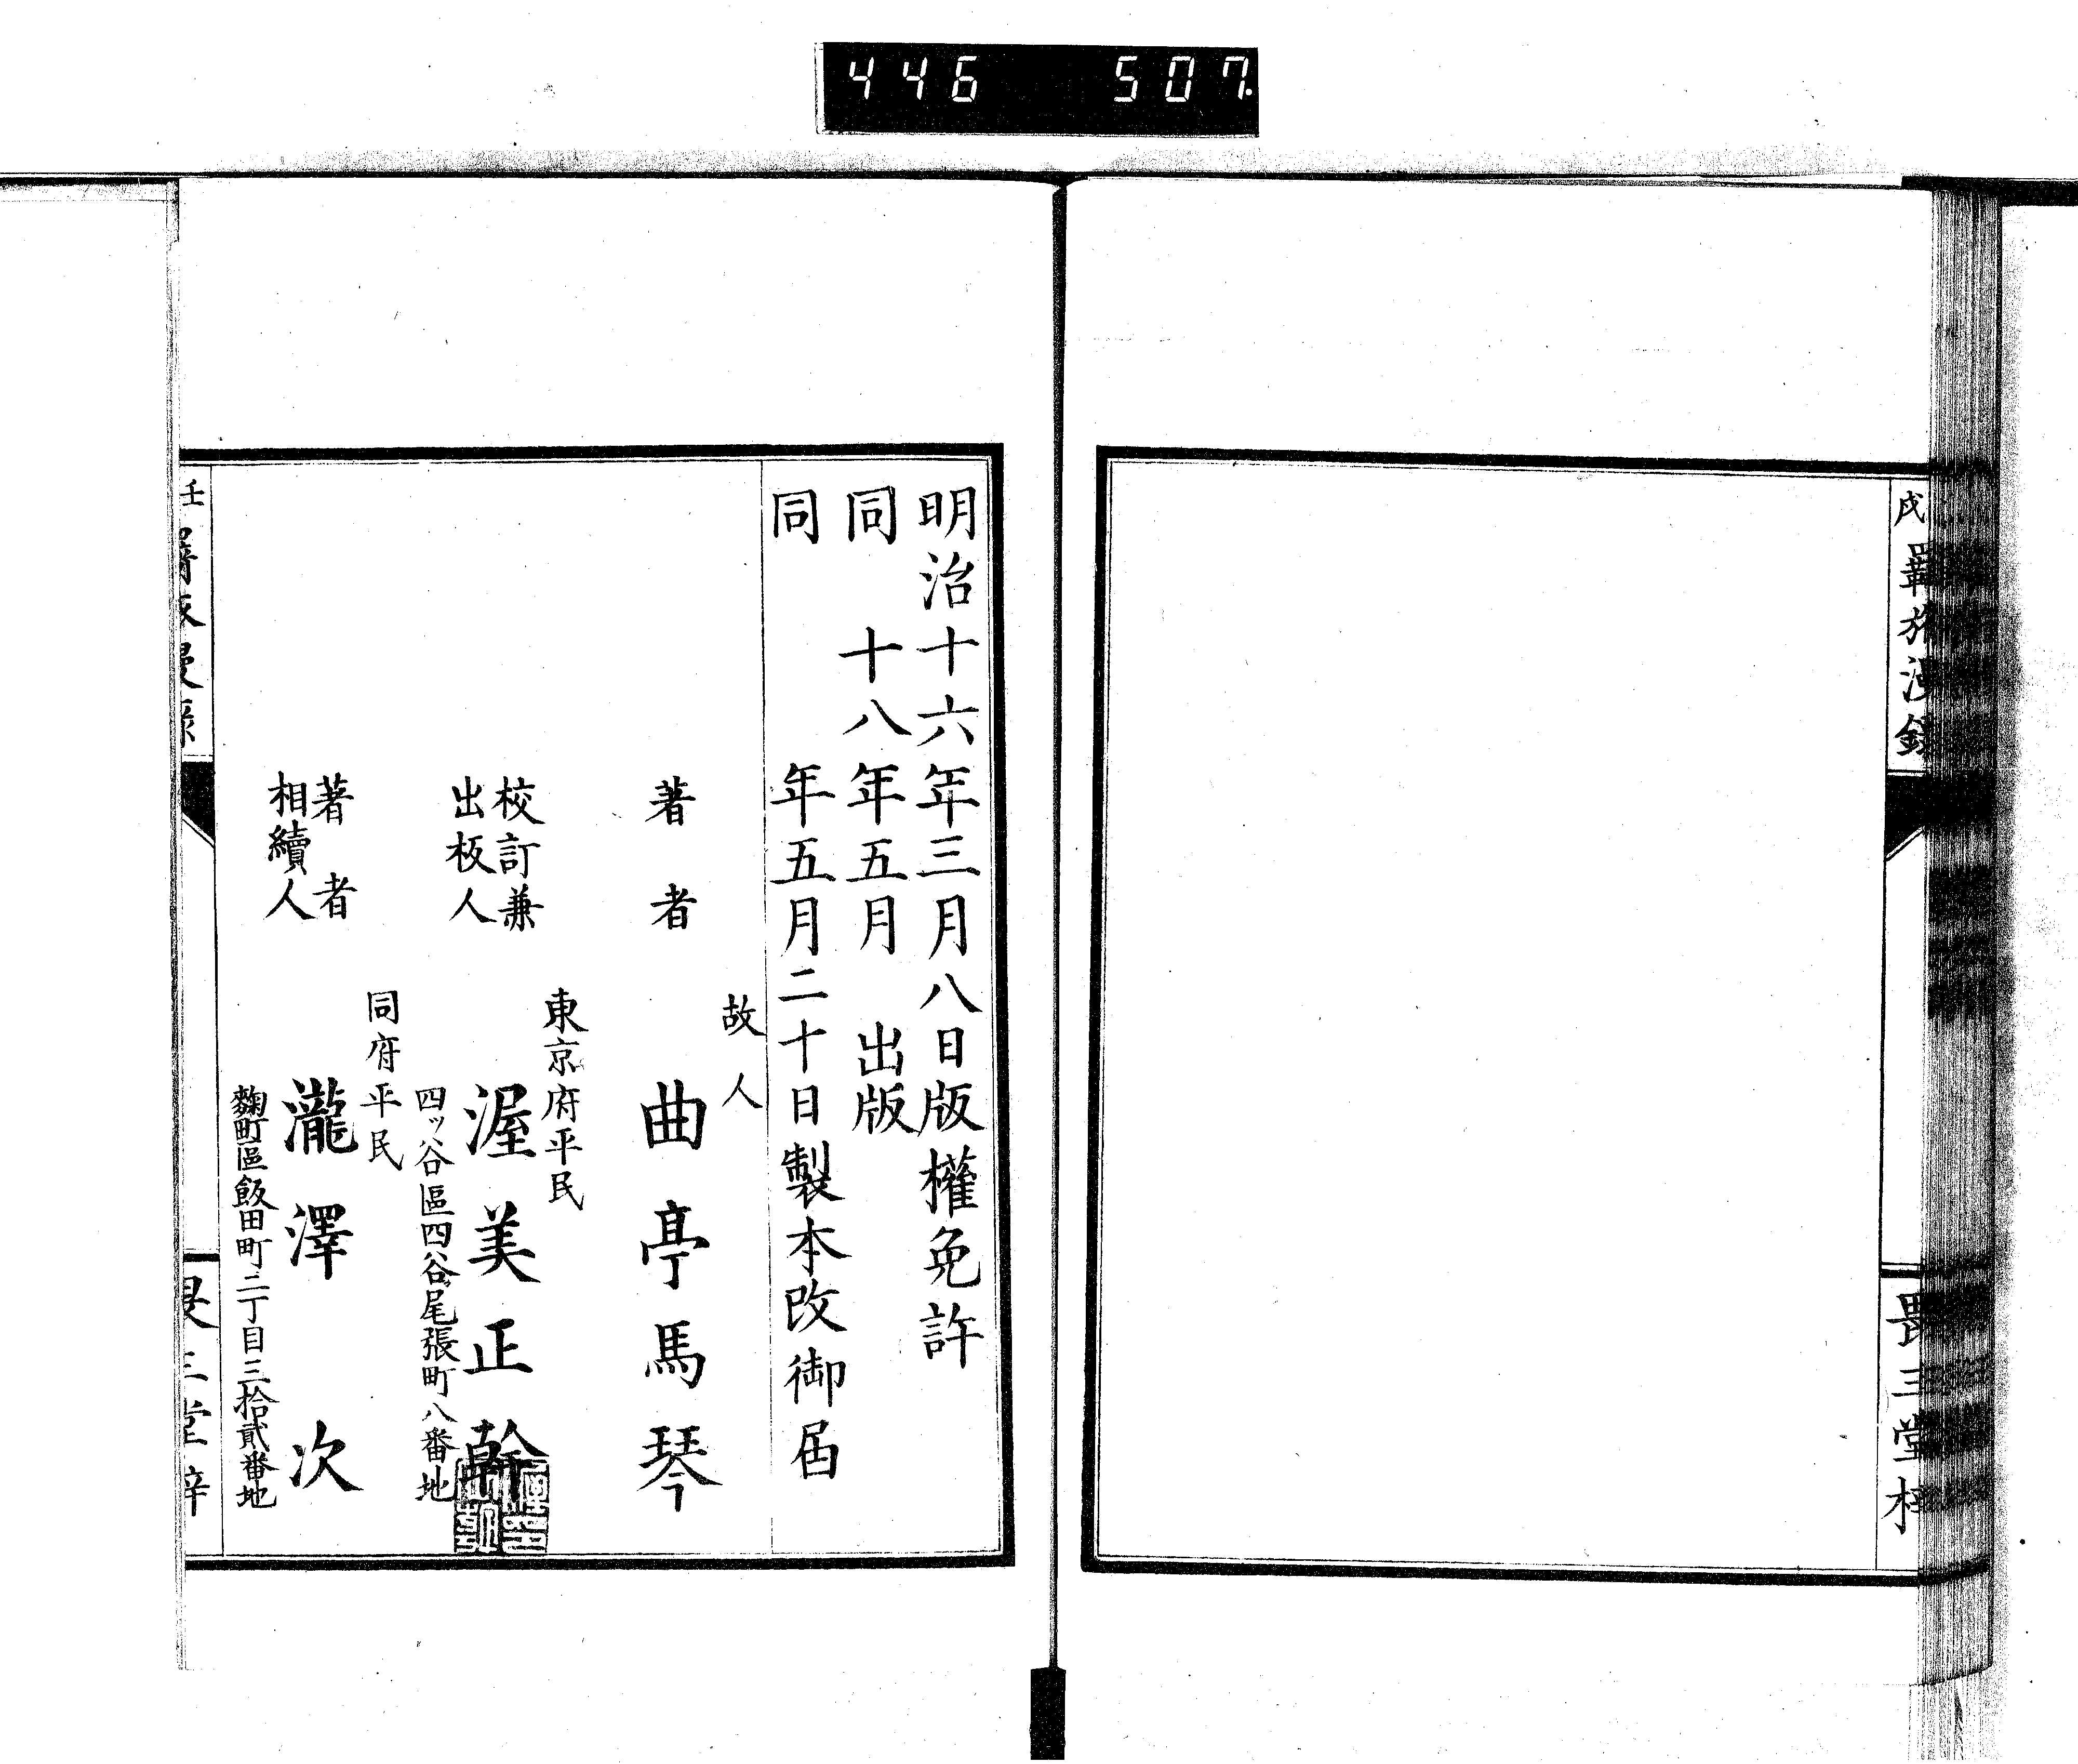 446 507.
戌 羇旅漫録
畏三堂梓
明治十六年三月八日版權免許
同 十八年五月 出版
同 年五月二十日製本改御届
故人
著者 曲亭馬琴
東京府平民
校訂兼
出板人
渥美正幹
四ッ谷區四谷尾張町八番地
同府平民
著者
相續人
瀧澤次
麴町區飯田町二丁目三拾貳番地
壬